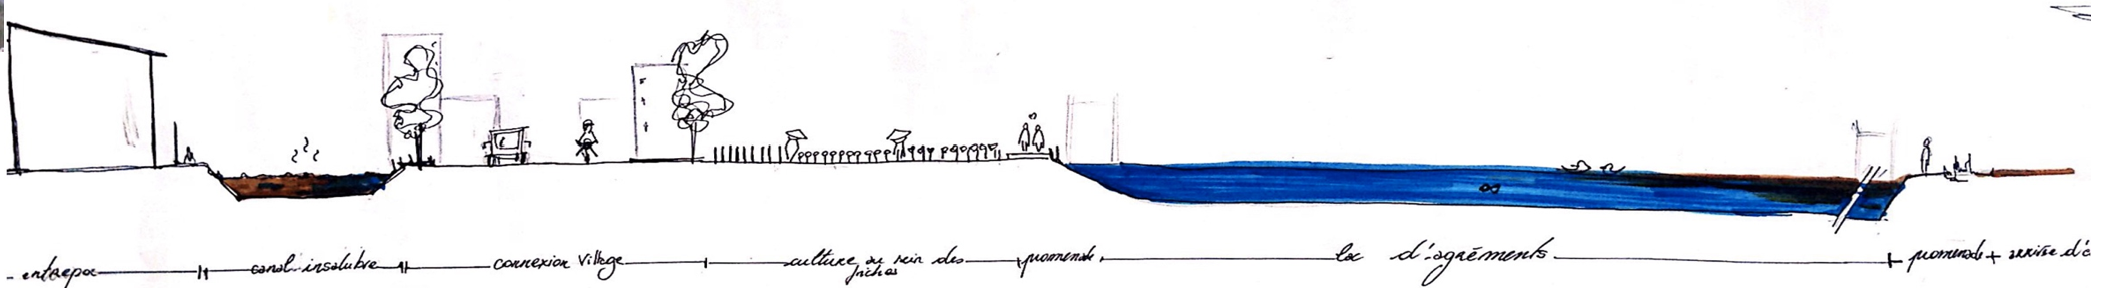 entrepot
canal insalubre
connexion village
culture au sein des
friches
promenade
lac d'agréments
promenade + arrivée d'e